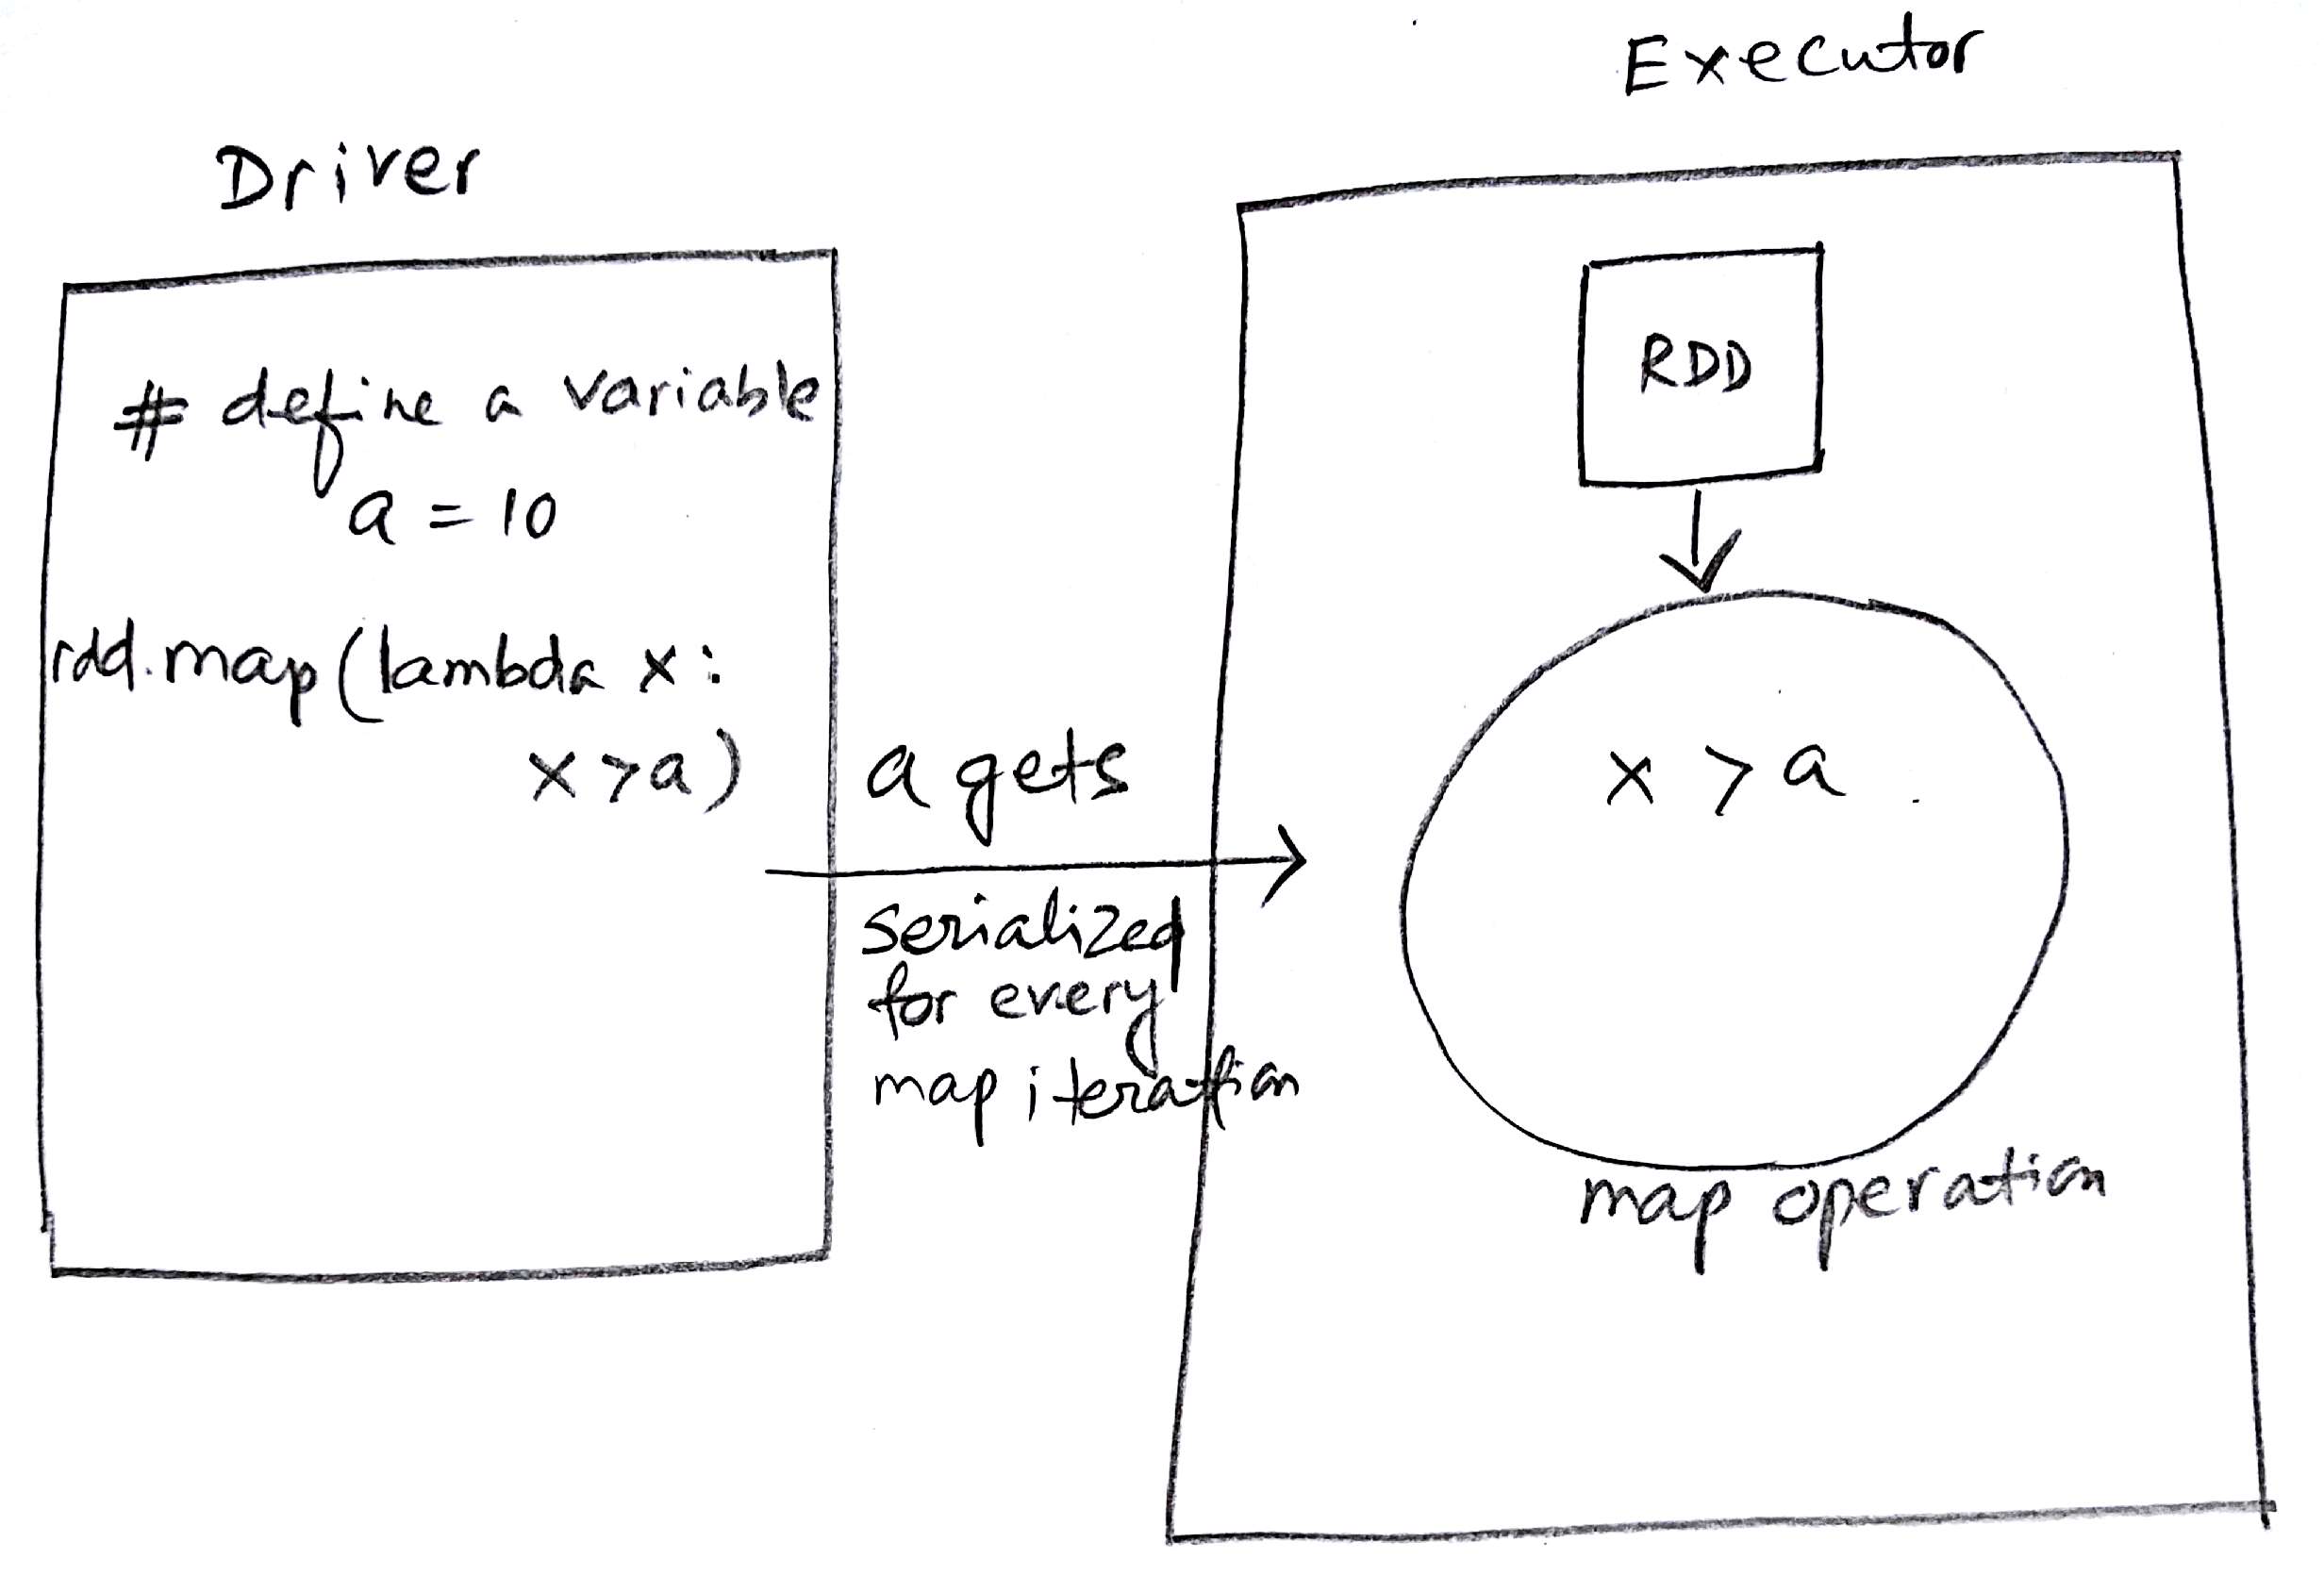 Driver
# define a variable
a = 10
rdd.map(lambda x:
x>a)
a gets
serialized
for every
map iteration
Executor
RDD
x > a
map operation